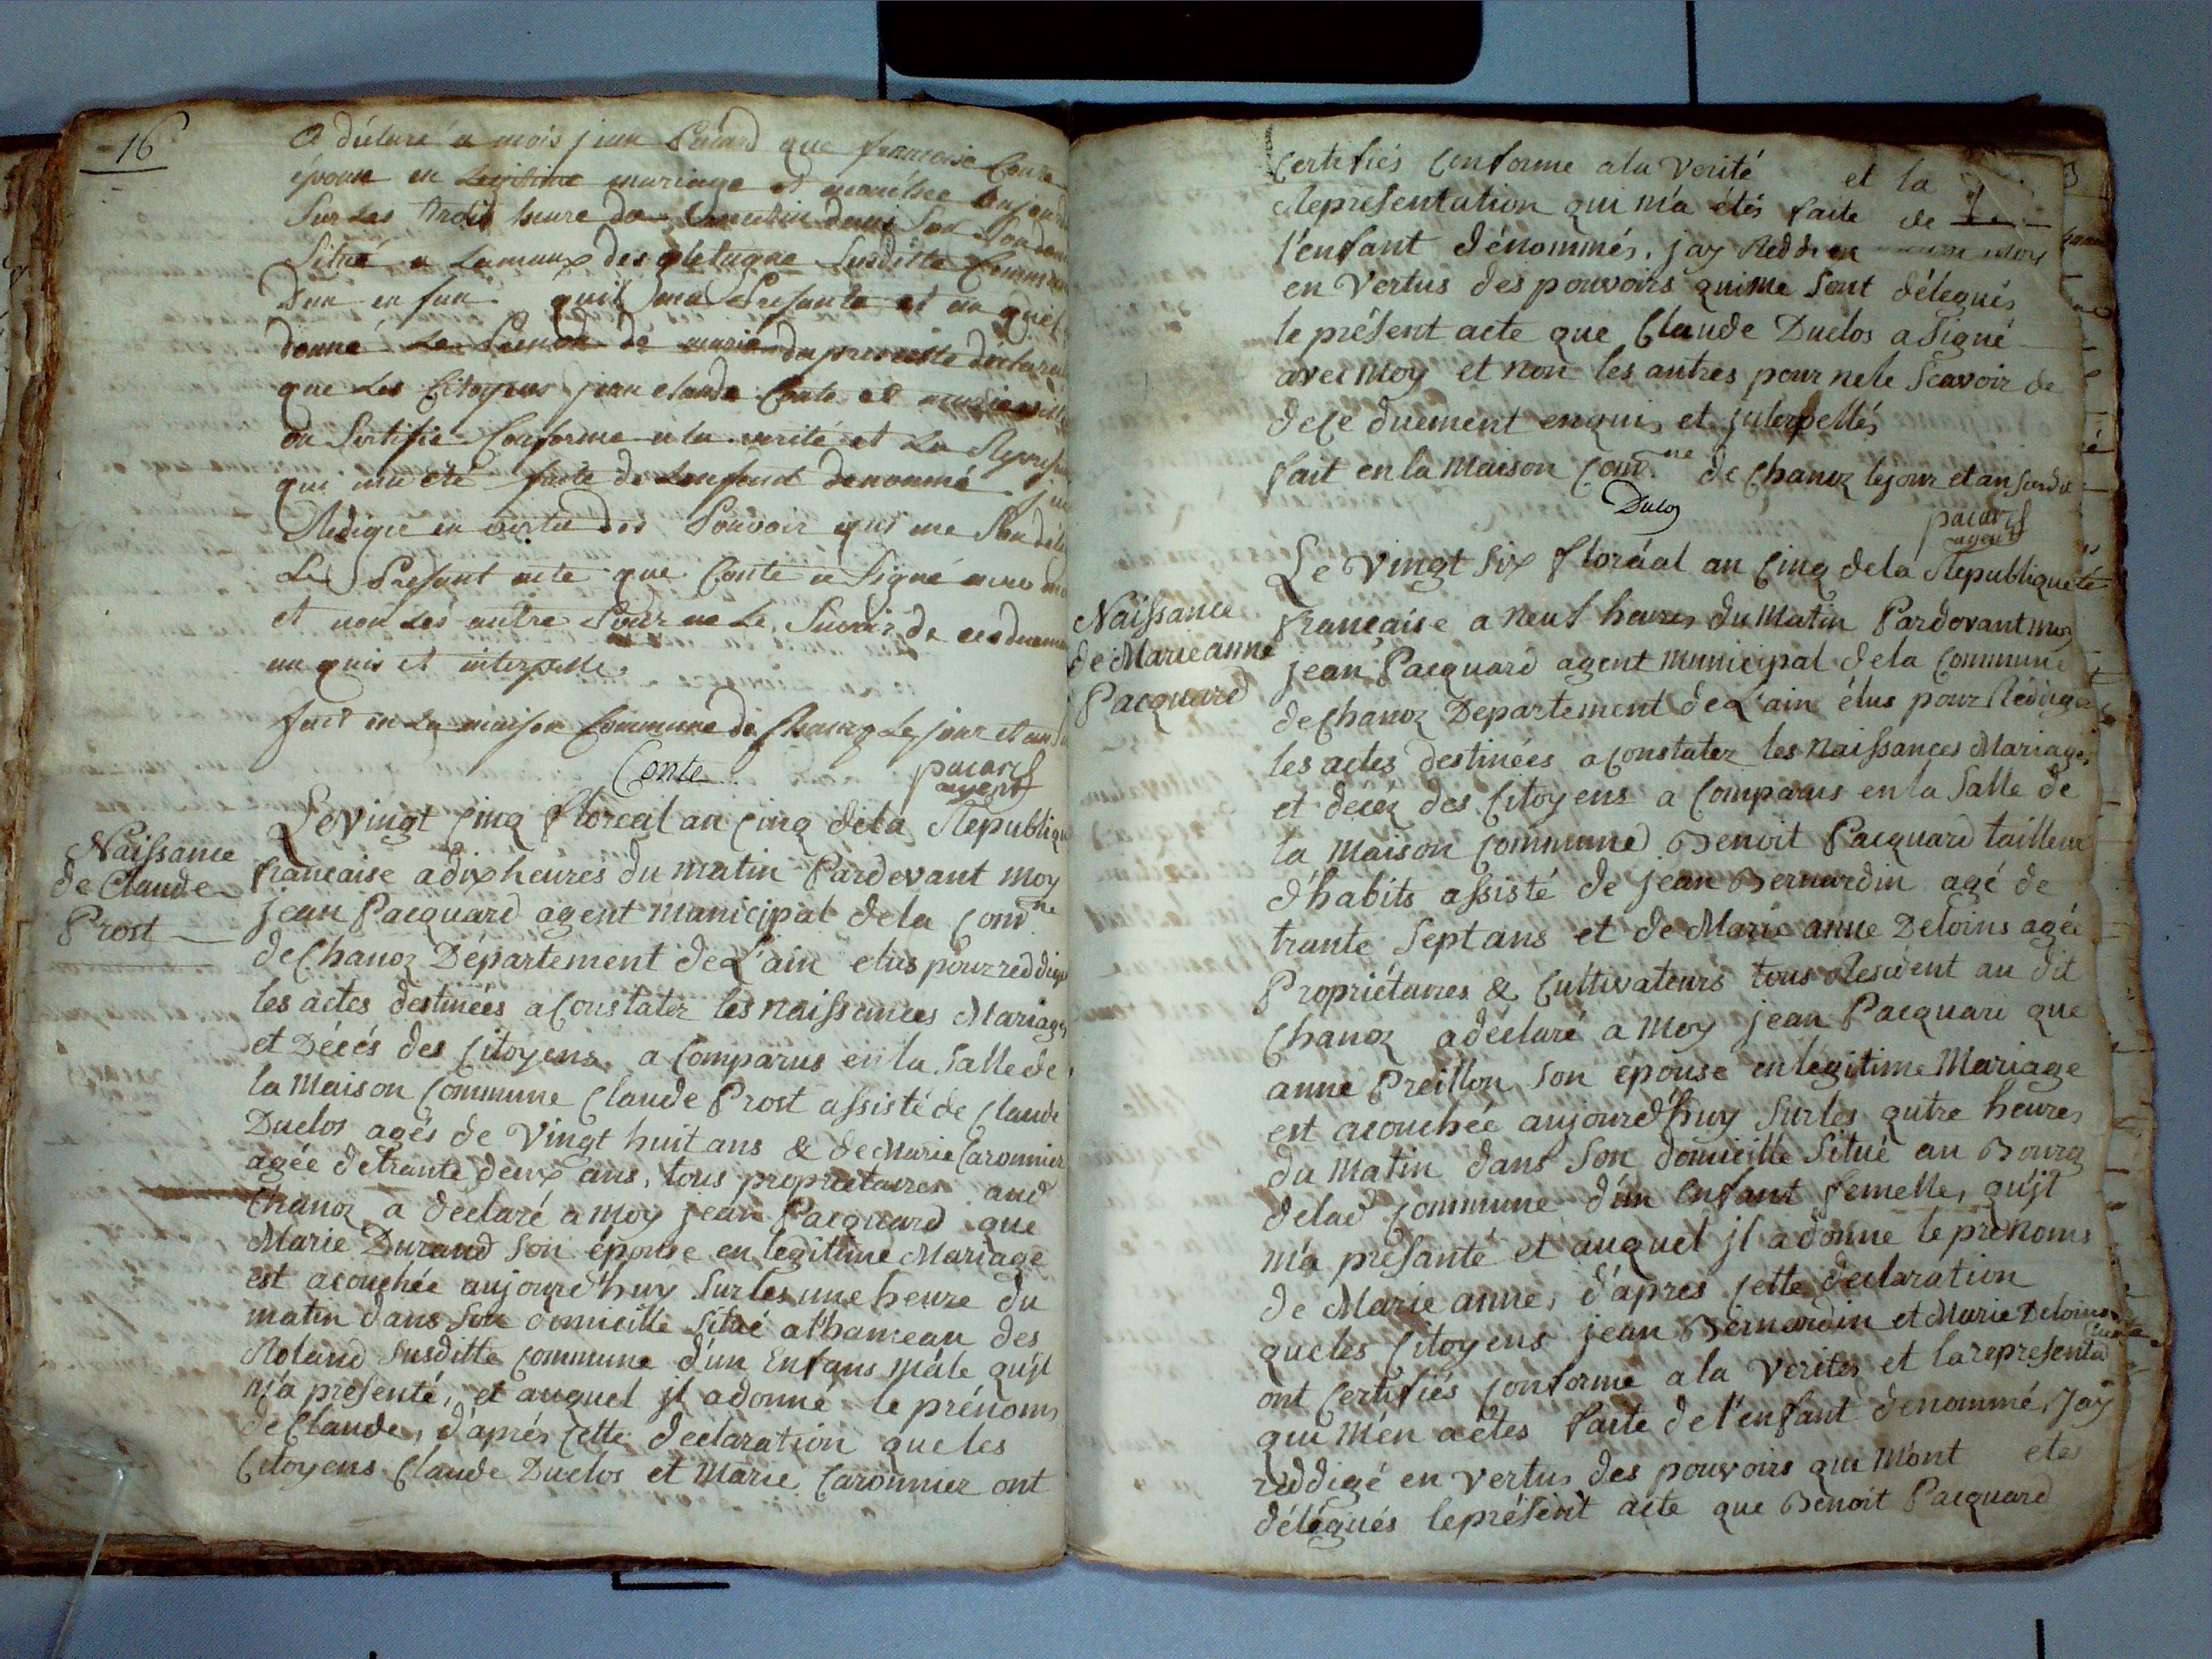 16
a déclaré a mois jean Pacard que francoise Conte
épouse en Legitime mariage et acouchee aujourd
Sur Les trois heure du matin dans Son dom
Situé a Lamaux des gletagne Susditte Commun
Dun enfan quil ma Presanté et au quel
donné Le Prenom de marie dapres cette déclara
que Les Citoyens jean claude Conte et marie
on Sertifie Conforme a la verité et La Represen
qui ma été faite de Lenfant denommé jai
Redigée en vertu des Pouvoir qui me Son délé
Le Presant acte que Conte a Signé avec mo
et non Les autre Pour ne Le Savoir de ce duemen
en quis et interpelle
fait en La maison Commune de Chanoz Le jour et an Su
Conte pacard
agent
Naissance
de Claude
Prost
Le Vingt cinq floreal an cinq dela Republiqu
francaise a dix heures du matin Pardevant moy
jean Pacquard agent municipal dela comne
de Chanoz Département de L'ain elus pour reddiger
les actes destinées a constater les naissances Mariages
et Décés des Citoyens, a comparus en la salle de
la Maison Commune Claude Prost assisté de Claude
Duclos agés de Vingt huit ans & de Marie Caronnier
agée de trante deux ans, tous proprietaires aud
Chanoz a declaré a moy jean Pacquard que
Marie Durand son épouse en legitime Mariage
est acouchée aujourd'huy sur les une heure du
matin dans son domicille situé a l'hameau des
Roland susditte commune d'un Enfans mâle qu'il
m'a presenté, et auquel jl a donné le prénoms
de Claude, d'aprés cette declaration que les
Citoyens Claude Duclos et Marie Caronnier ont
certifiés conforme a la Verité et la
Representation qui m'a étés faite de
l'enfant dénommés, jay Reddi
en Vertus des pouvoirs qui me sont délegués
le présent acte que Claude Duclos a signé
avec moy et non les autres pour ne le scavoir de
de ce duement enquis et jnterpellés
fait en la maison comne de Chanoz le jour et an susdit
Duclos pacard
agent
Naissance
de Marie anne
Pacquard
Le Vingt six floréal an cinq de la Republique
francaise a neuf heures du Matin Pardevant moy
jean Pacquard agent municipal dela commune
de Chanoz Departement de L'ain élus pour Rédiger
les actes destinées a constater les naissances Mariages
et decéz des Citoyens a comparus en la salle de
la Maison commune Benoit Pacquard tailleur
d'habits assisté de jean Bernardin agé de
trante sept ans et de Marie anne Deloins agée
Propriétaires & Cultivateurs tous Resident au dit
Chanoz a déclaré a moy jean Pacquard que
anne Preillon son épouse en légitime Mariage
est acouchée aujourd'huy sur les qutre heures
du Matin dans son domicille situé au Bourg
delad commune d'un enfant femelle, qujl
m'a présanté et auquel jl a donne le prenoms
de Marie anne, d'apres cette declaration
que les Citoyens jean Bernardin et Marie Deloins
ont certifiés conforme a la Verites et la representa
qui m'en a étes faite de l'enfant denommé, jay
reddigé en vertus des pouvoirs qui m'ont etes
délégués le présent acte que Benoit Pacquard